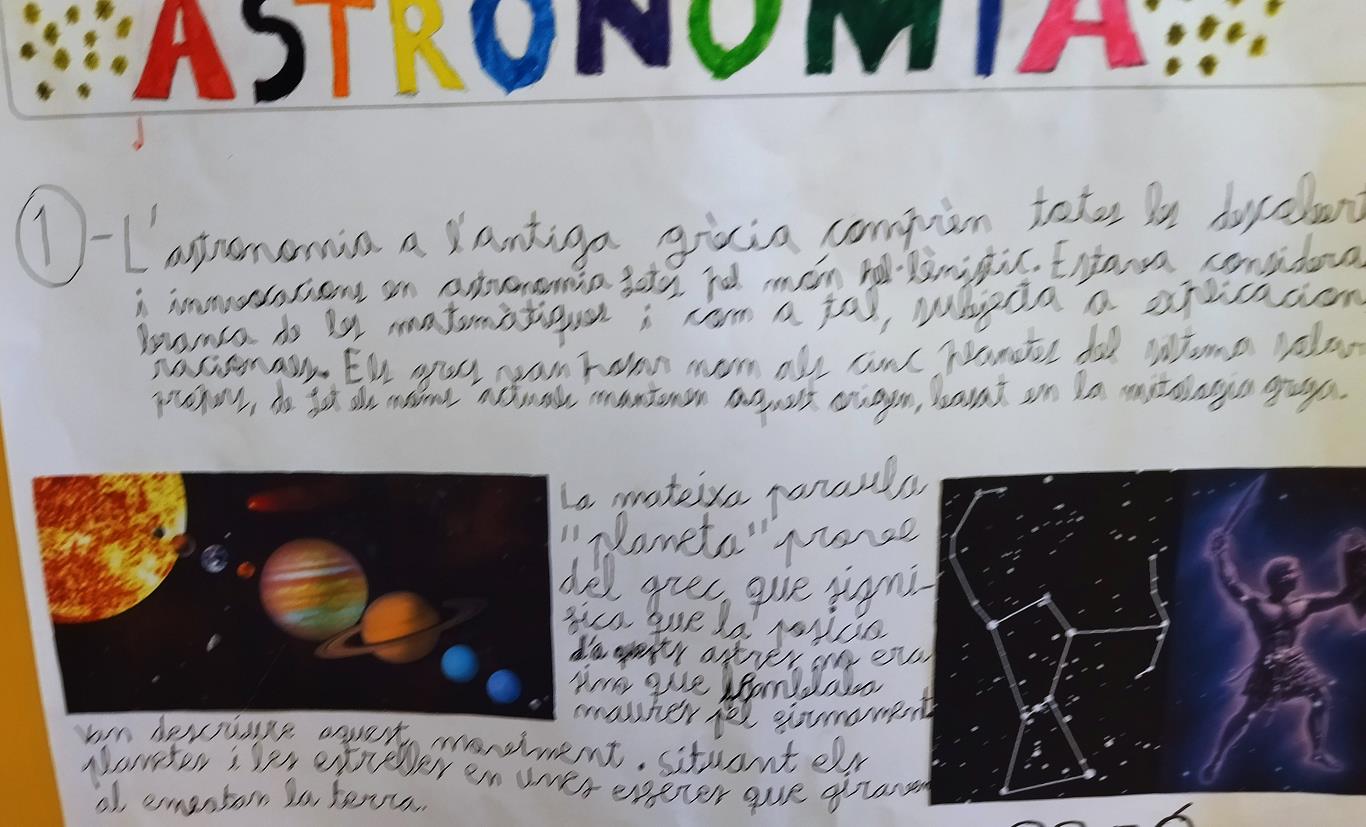 ASTRONOMIA
1 - L'astronomia a l'antiga grècia comprèn totes les descobert
i innovacions en astronomia fetes pel món hel·lènistic. Estava considera
branca de les matemàtiques i com a tal, subjecta a explicacion
racionals. Els grecs van posar nom als cinc planetes del sistema solar
propers, de fet els noms actuals mantenen aquest origen, basat en la mitologia grega.
La mateixa paraula
"planeta" prové
del grec que signi-
fica que la posicio
d'aquests astres no era
sino que semblaba
moures pel firmament
Van descriure aquest moveiment. situant els
planetes i les estrelles en unes esferes que giraven
al
la terra.